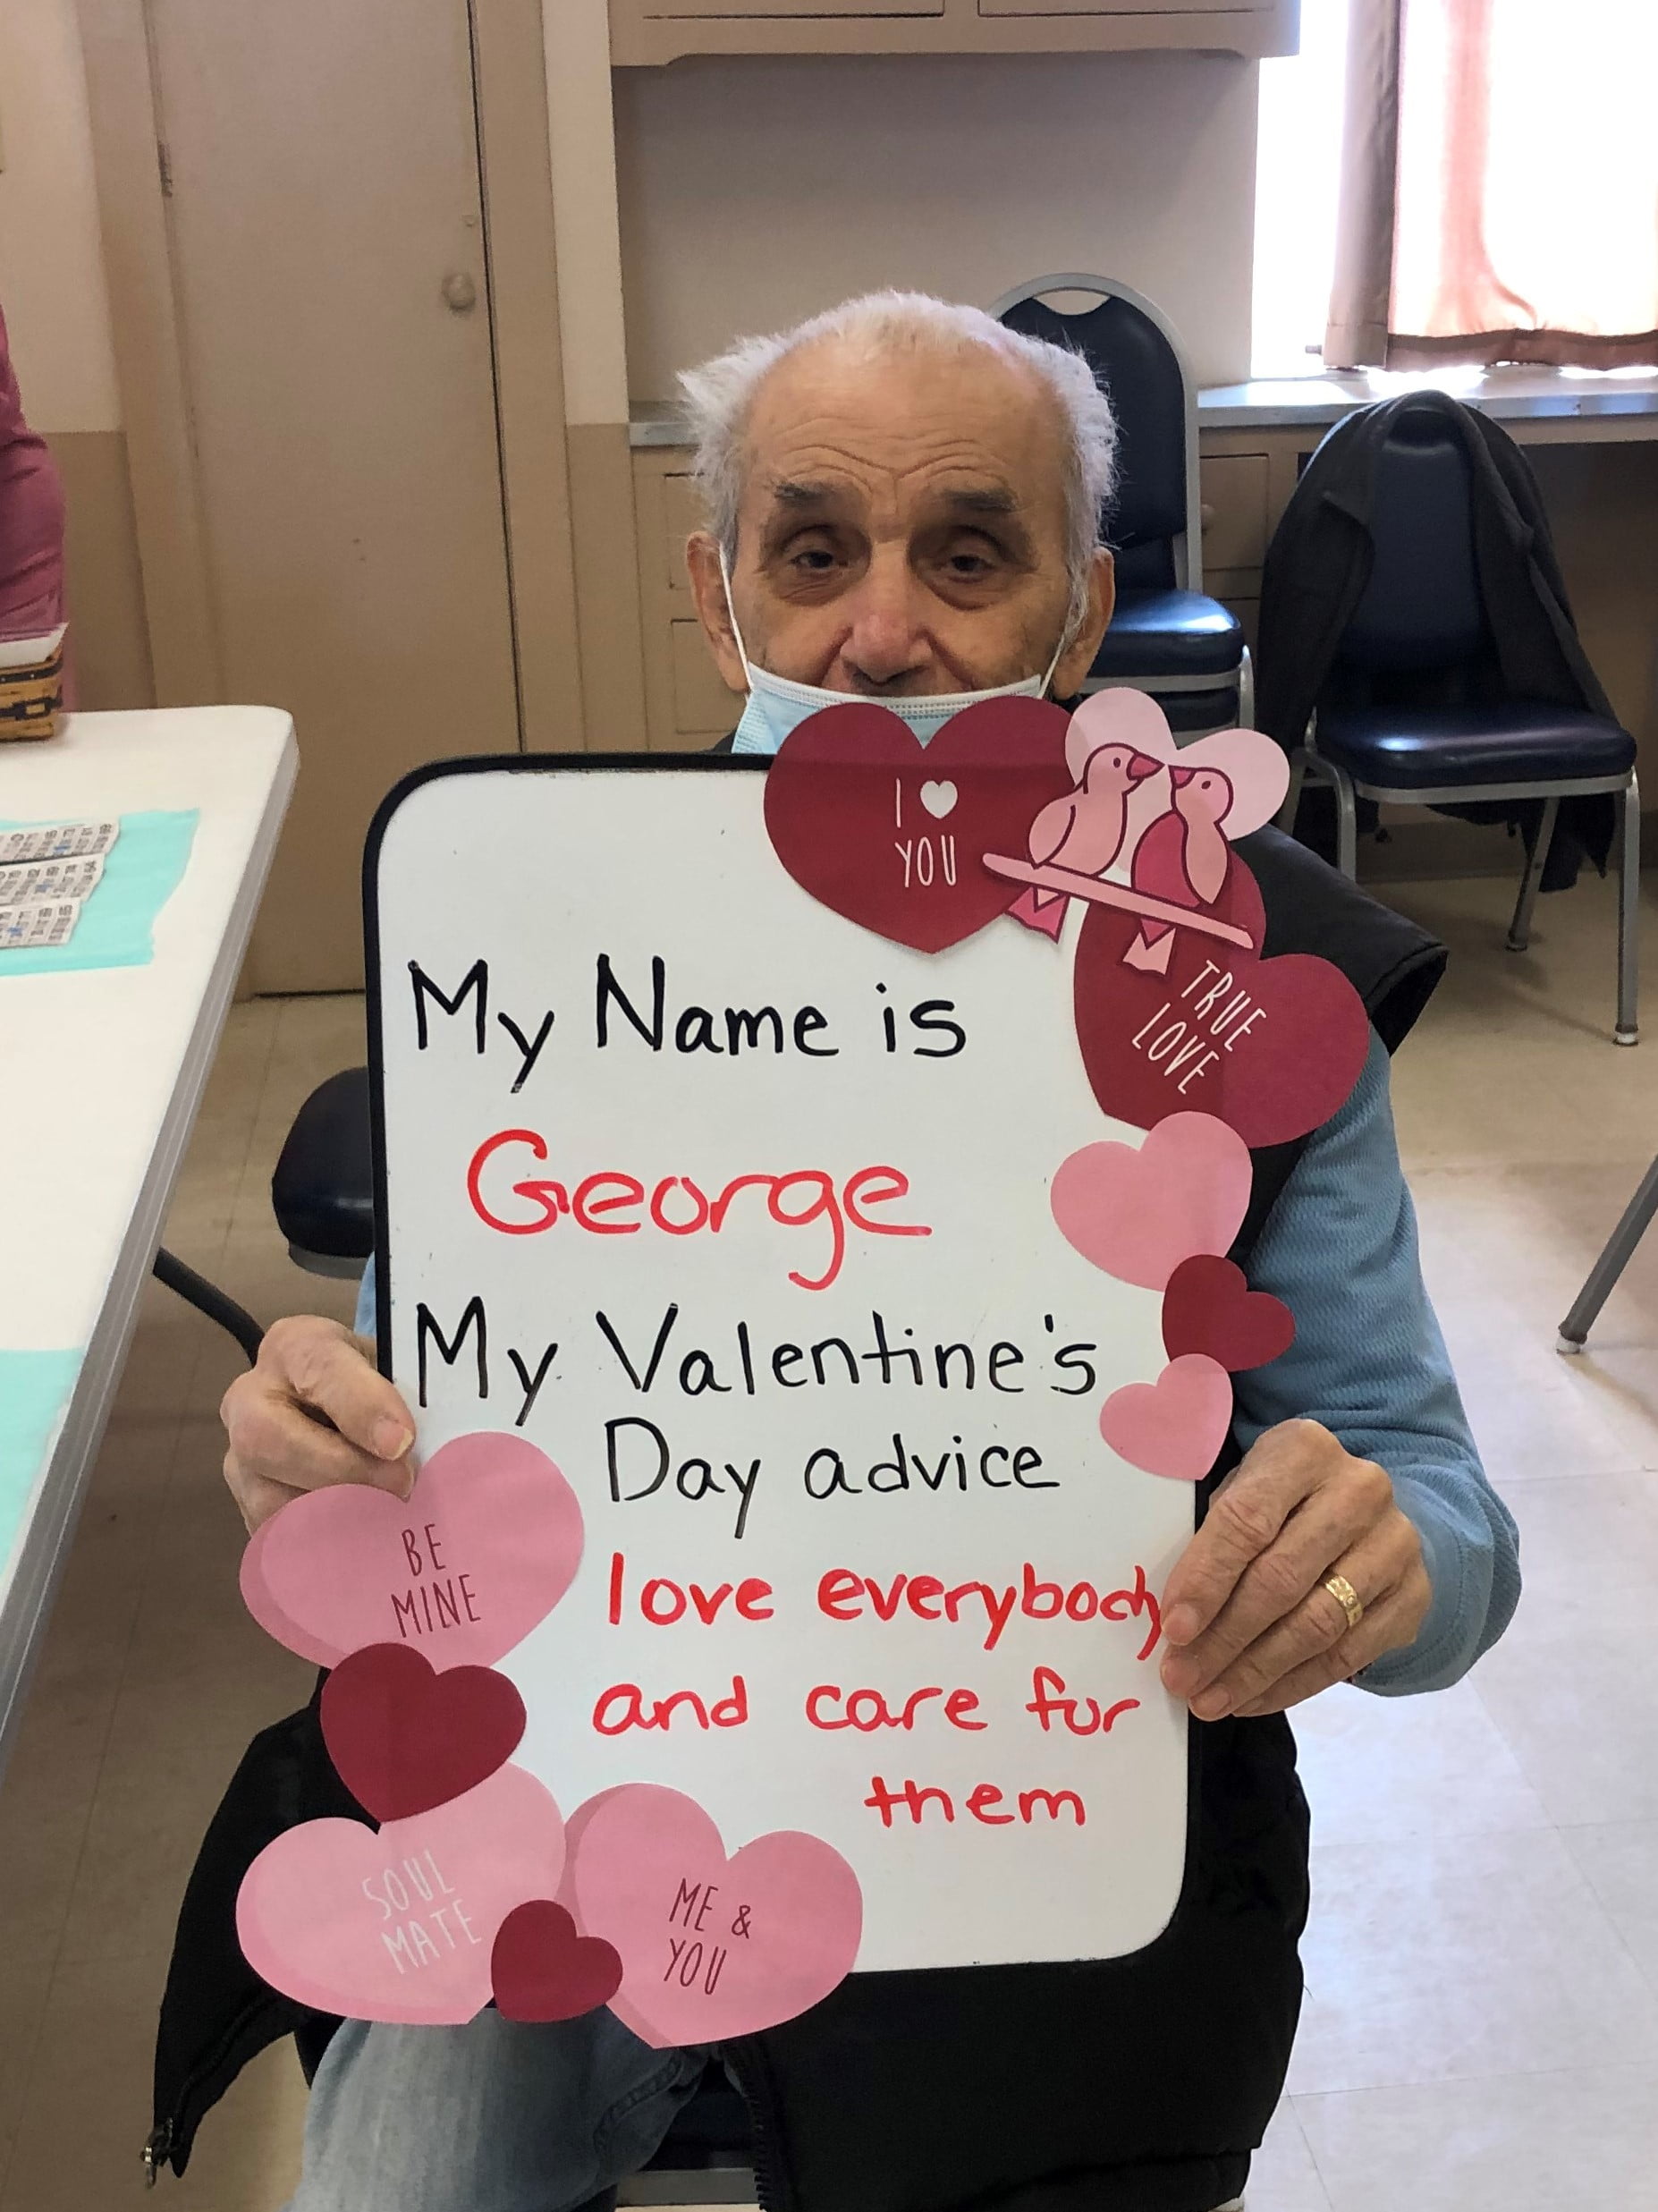 I ♥
YOU
TRUE
LOVE
My Name is
George
My Valentine's
Day advice
love everybody
and care for
them
BE
MINE
SOUL
MATE
ME &
YOU